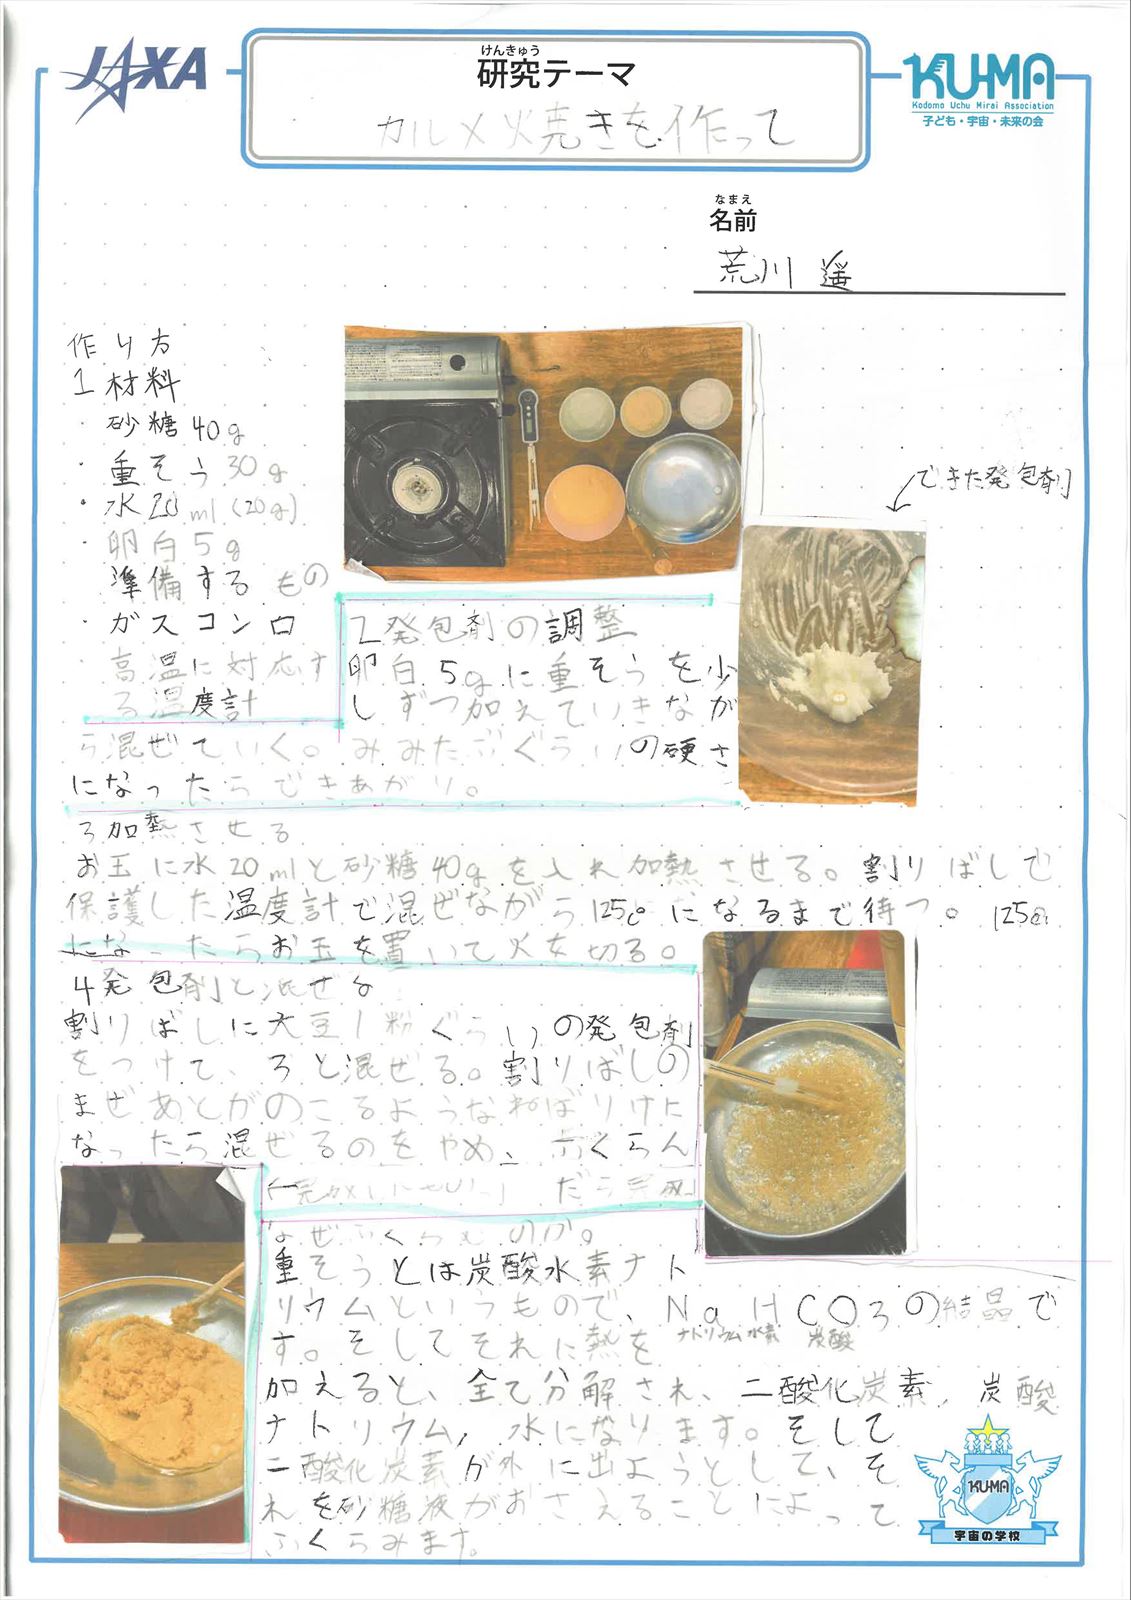 JAXA
けんきゅう
研究テーマ
カルメ焼きを作って
KU-MA
Kodomo Uchu Mirai Association
子ども・宇宙・未来の会
なまえ
名前
荒川 遥
作り方
1 材料
砂糖40g
・重そう30g
・水20ml(20g)
卵白5g
準備するもの
・ガスコンロ
高温に対応す
る温度計
できた発包剤
2発包剤の調整
卵白5gに重そうを少
しずつ加えていきなが
ら混ぜていく。みみたぶぐらいの硬さ
になったらできあがり。
3加熱させる
お玉に水20mlと砂糖40gを入れ加熱させる。割りばしで
保護した温度計で混ぜながら125℃になるまで待つ。125℃
になったらお玉を置いて火を切る。
4発包剤と混ぜる
割りばしに大豆1粉ぐらいの発包剤
をつけて、3と混ぜる。割りばしの
まぜあとがのこるようなねばりけに
なったら混ぜるのをやめ、ふくらん
だら完成
なぜふくらむのか。
重そうとは炭酸水素ナト
リウムというもので、NaHCO3の結晶で
ナトリウム 水素 炭酸
す。そしてそれに熱を
加えると、全て分解され、二酸化炭素,炭酸
ナトリウム,水になります。そして
二酸化炭素が外に出ようとして、そ
れを砂糖液がおさえることによって
ふくらみます。
KUMA
宇宙の学校